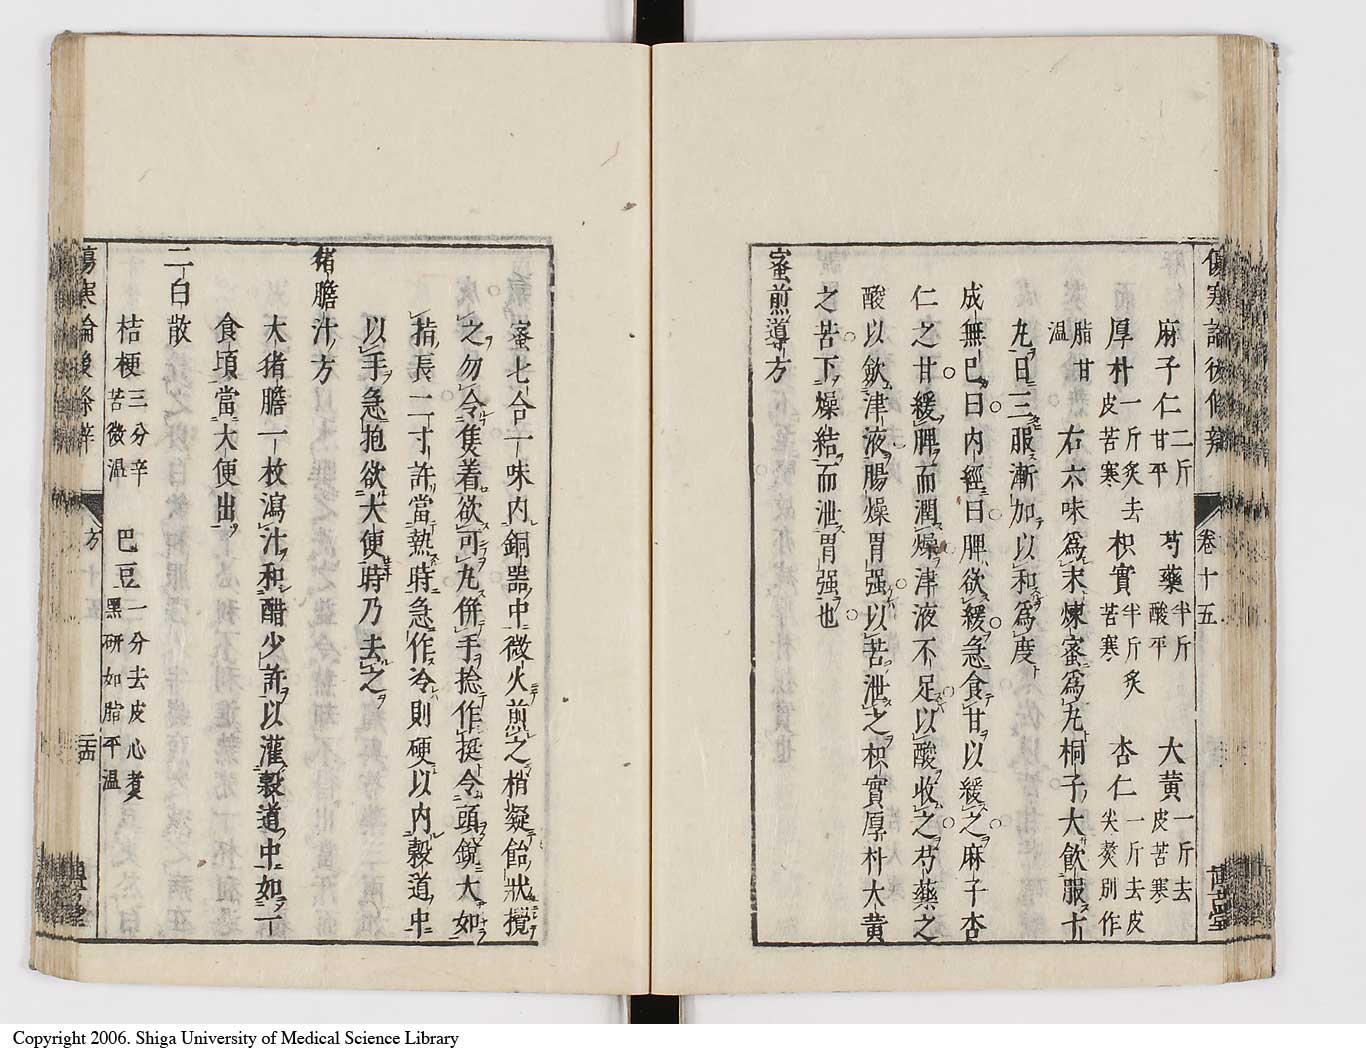 傷寒論後條辨
卷十五
麻子仁二斤甘平　芍藥半斤酸平　大黃一斤去皮苦寒
厚朴一斤炙去皮苦寒　枳實半斤炙苦寒　杏仁一斤去皮尖熬別作脂甘温
右六味爲末煉蜜爲丸桐子大飲服十
丸日三服漸加以和爲度
成無已曰內經曰脾欲緩急食甘以緩之麻子杏
仁之甘緩脾而潤燥津液不足以酸收之芍藥之
酸以歛津液腸燥胃强以苦泄之枳實厚朴大黃
之苦下燥結而泄胃强也
蜜煎導方
蜜七合一味內銅器中微火煎之稍凝飴狀攪
之勿令焦着欲可丸併手捻作挺令頭銳大如
指長二寸許當熱時急作冷則硬以內穀道中
以手急抱欲大便時乃去之
猪膽汁方
大猪膽一枚瀉汁和醋少許以灌穀道中如一
食頃當大便出
二白散
桔梗三分辛苦微温　巴豆一分去皮心煑黑研如脂平温
傷寒論後條辨
方
十五
二十四
Copyright 2006. Shiga University of Medical Science Library